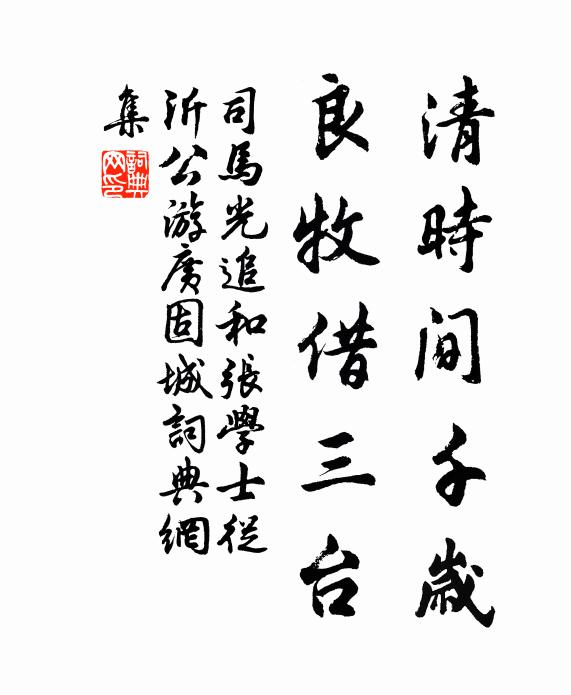 清時間千歲
良牧借三台
司馬光追和張學士從
沂公游廣固城詞典網
集
詞典網印